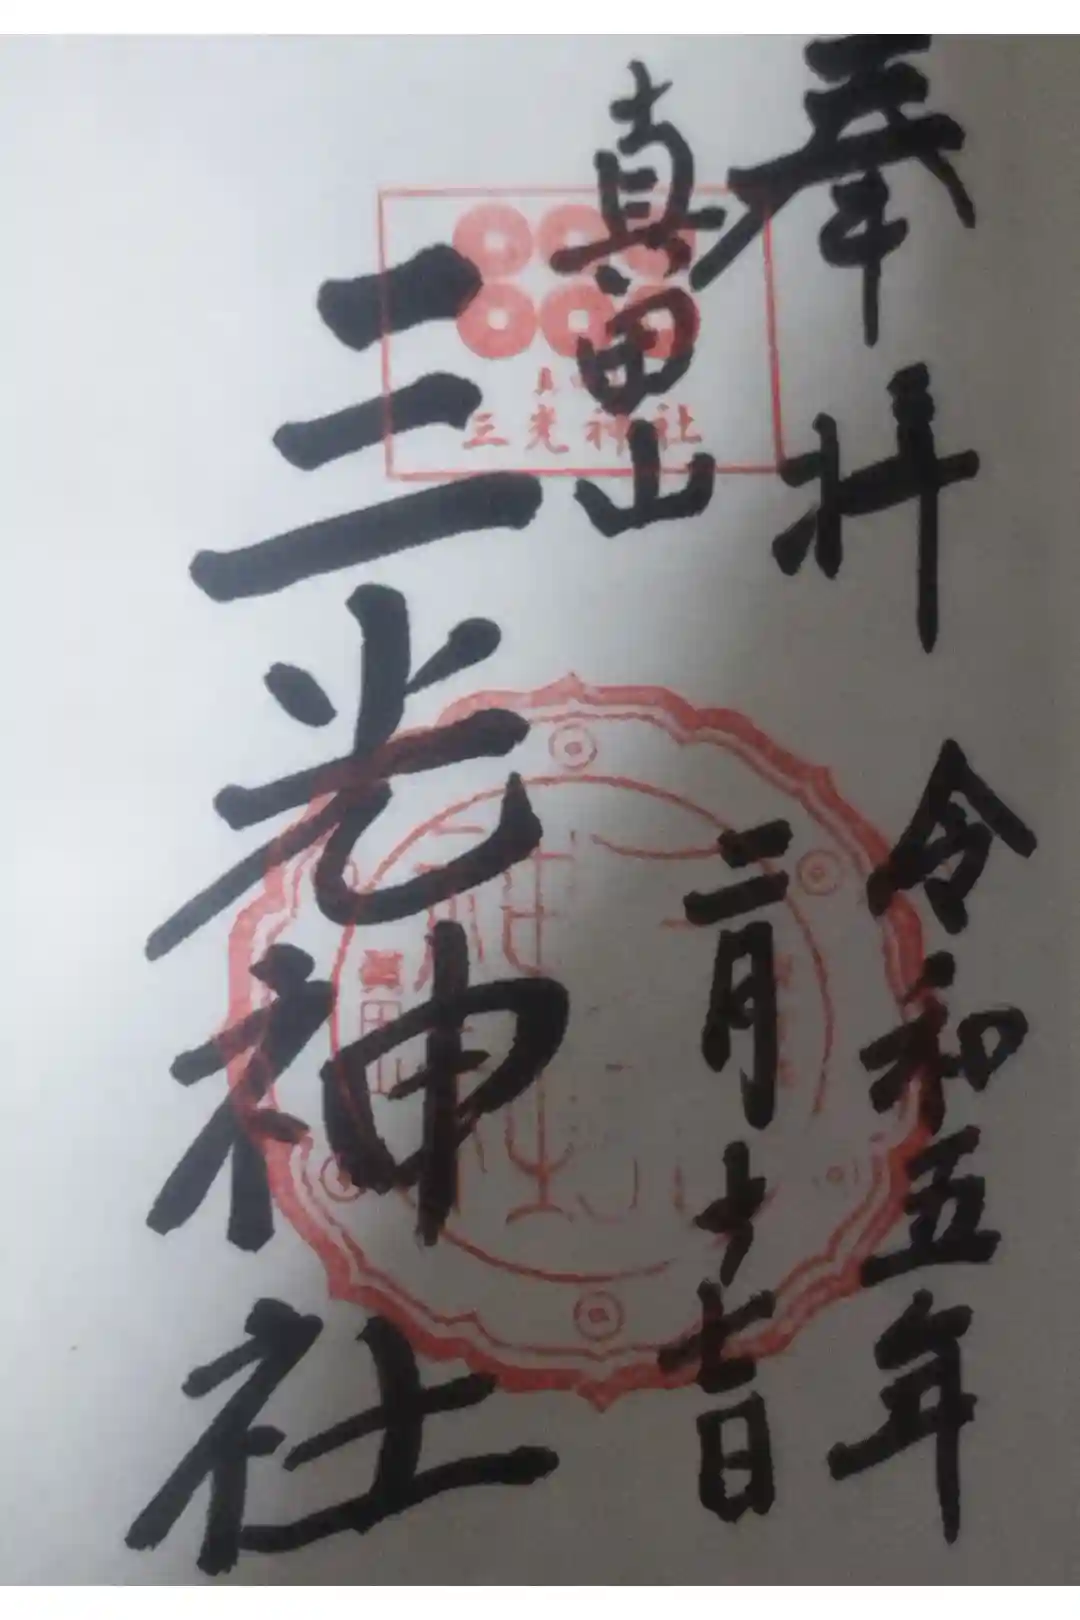 奉拝
令和五年
二月十七日
真田山
三光神社
三光神社
眞田山